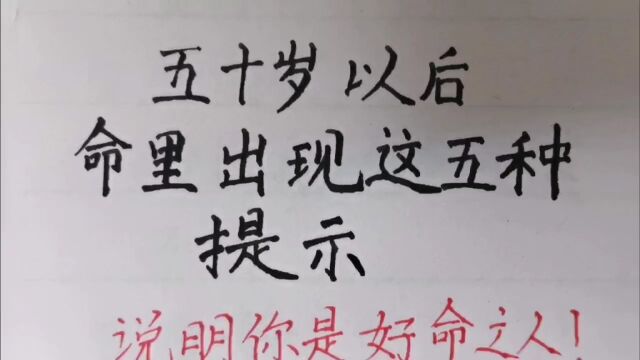 五十岁以后
命里出现这五种
提示
说明你是好命之人!